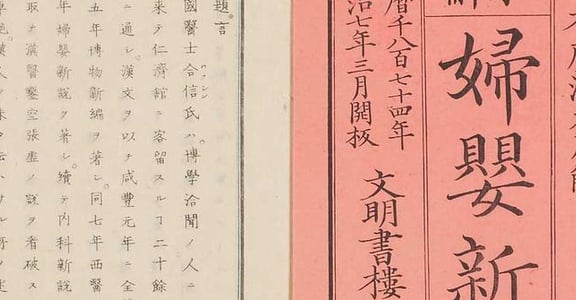 婦嬰新
暦千八百七十四年
治七年三月開板
文明書樓
題言
國醫士合信氏ハ博學洽聞ノ人ニ
來テ仁濟館ニ客留スルコ二十餘
ニ通シ漢文ヲ以テ咸豐元年ニ全
五年博物新編ヲ著シ同七年西醫
年婦嬰新說ヲ著シ續テ內科新說
取テ漢醫鑿空張虛ノ說ヲ看破ス